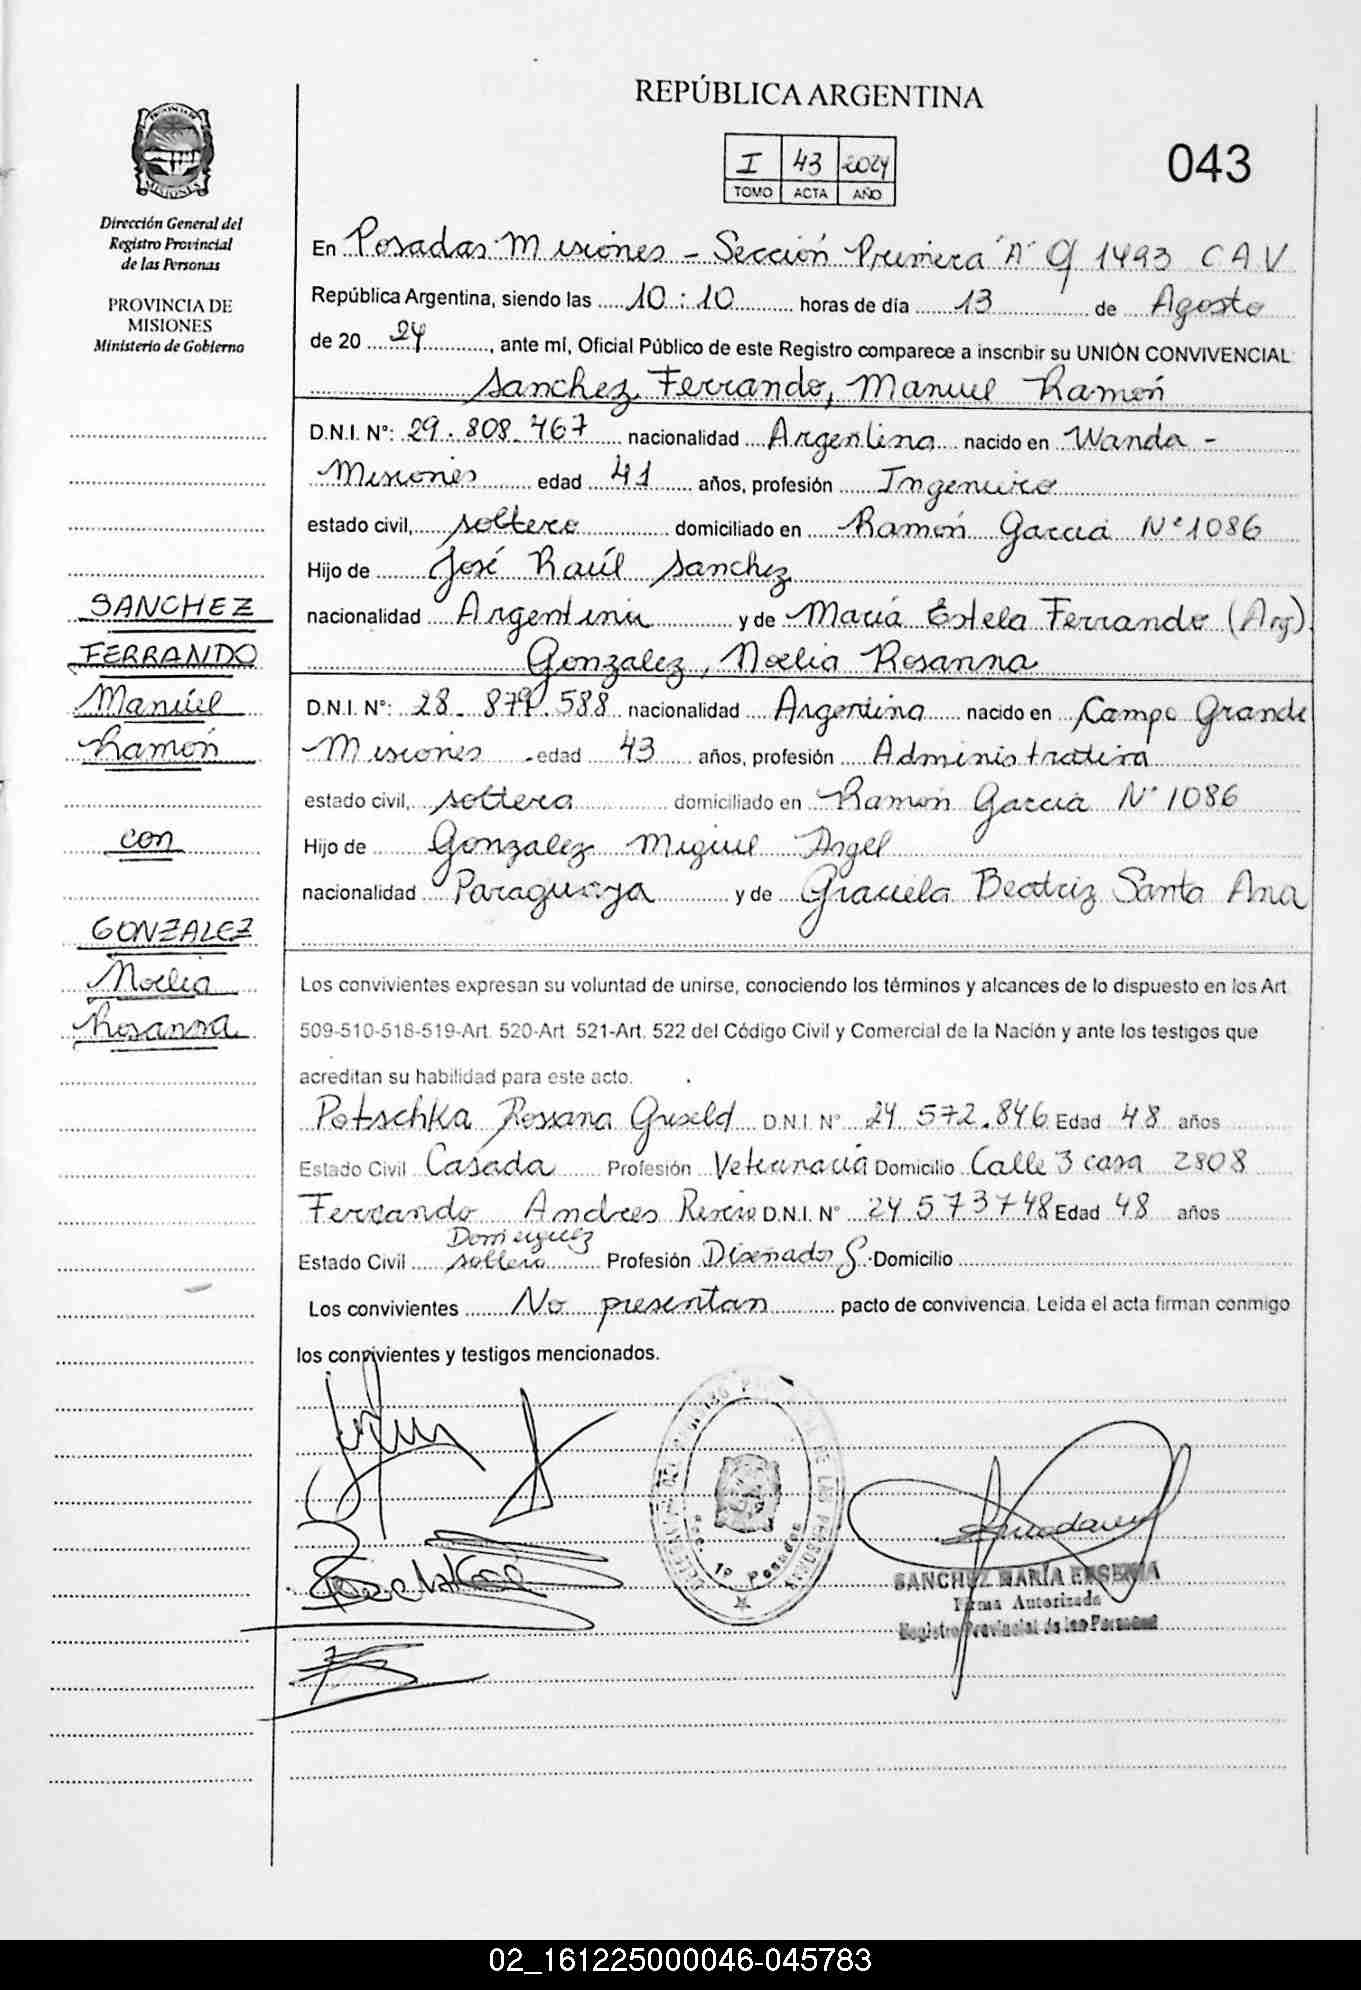 REPÚBLICA ARGENTINA
I 43 2024
TOMO ACTA AÑO
043
PROVINCIA DE MISIONES
Dirección General del
Registro Provincial
de las Personas
PROVINCIA DE
MISIONES
Ministerio de Gobierno
En Posadas Misiones - Sección Primera "A" 1493 C A V
República Argentina, siendo las 10:10 horas de día 13 de Agosto
de 20 24, ante mí, Oficial Público de este Registro comparece a inscribir su UNIÓN CONVIVENCIAL
Sanchez Ferrando, Manuel Ramón
D.N.I. N°: 29.808.467 nacionalidad Argentina nacido en Wanda -
Misiones edad 41 años, profesión Ingeniero
estado civil, soltero domiciliado en Ramón Garcia N° 1086
Hijo de José Raúl Sanchez
nacionalidad Argentina y de María Estela Ferrando (Arg)
Gonzalez, Noelia Rosanna
D.N.I. N°: 28.879.588 nacionalidad Argentina nacido en Campo Grande
Misiones edad 43 años, profesión Administrativa
estado civil, soltera domiciliado en Ramón Garcia N° 1086
Hijo de Gonzalez Miguel Angel
nacionalidad Paraguaya y de Graciela Beatriz Santa Ana
SANCHEZ
FERRANDO
Manuel
Ramón
con
GONZALEZ
Noelia
Rosanna
Los convivientes expresan su voluntad de unirse, conociendo los términos y alcances de lo dispuesto en los Art.
509-510-518-519-Art. 520-Art. 521-Art. 522 del Código Civil y Comercial de la Nación y ante los testigos que
acreditan su habilidad para este acto.
Potschka Rossana Griseld D.N.I. N° 24.572.846 Edad 48 años
Estado Civil Casada Profesión Veterinaria Domicilio Calle 3 casa 2808
Ferrando Andres D.N.I. N° 24.573748 Edad 48 años
Dominguez
Estado Civil soltero Profesión Diseñador G. Domicilio
Los convivientes No presentan pacto de convivencia. Leída el acta firman conmigo
los convivientes y testigos mencionados.
Sec. 1º Posadas
SANCHEZ MARÍA EUGENIA
Firma Autorizada
Registro Provincial de las Personas
02_161225000046-045783